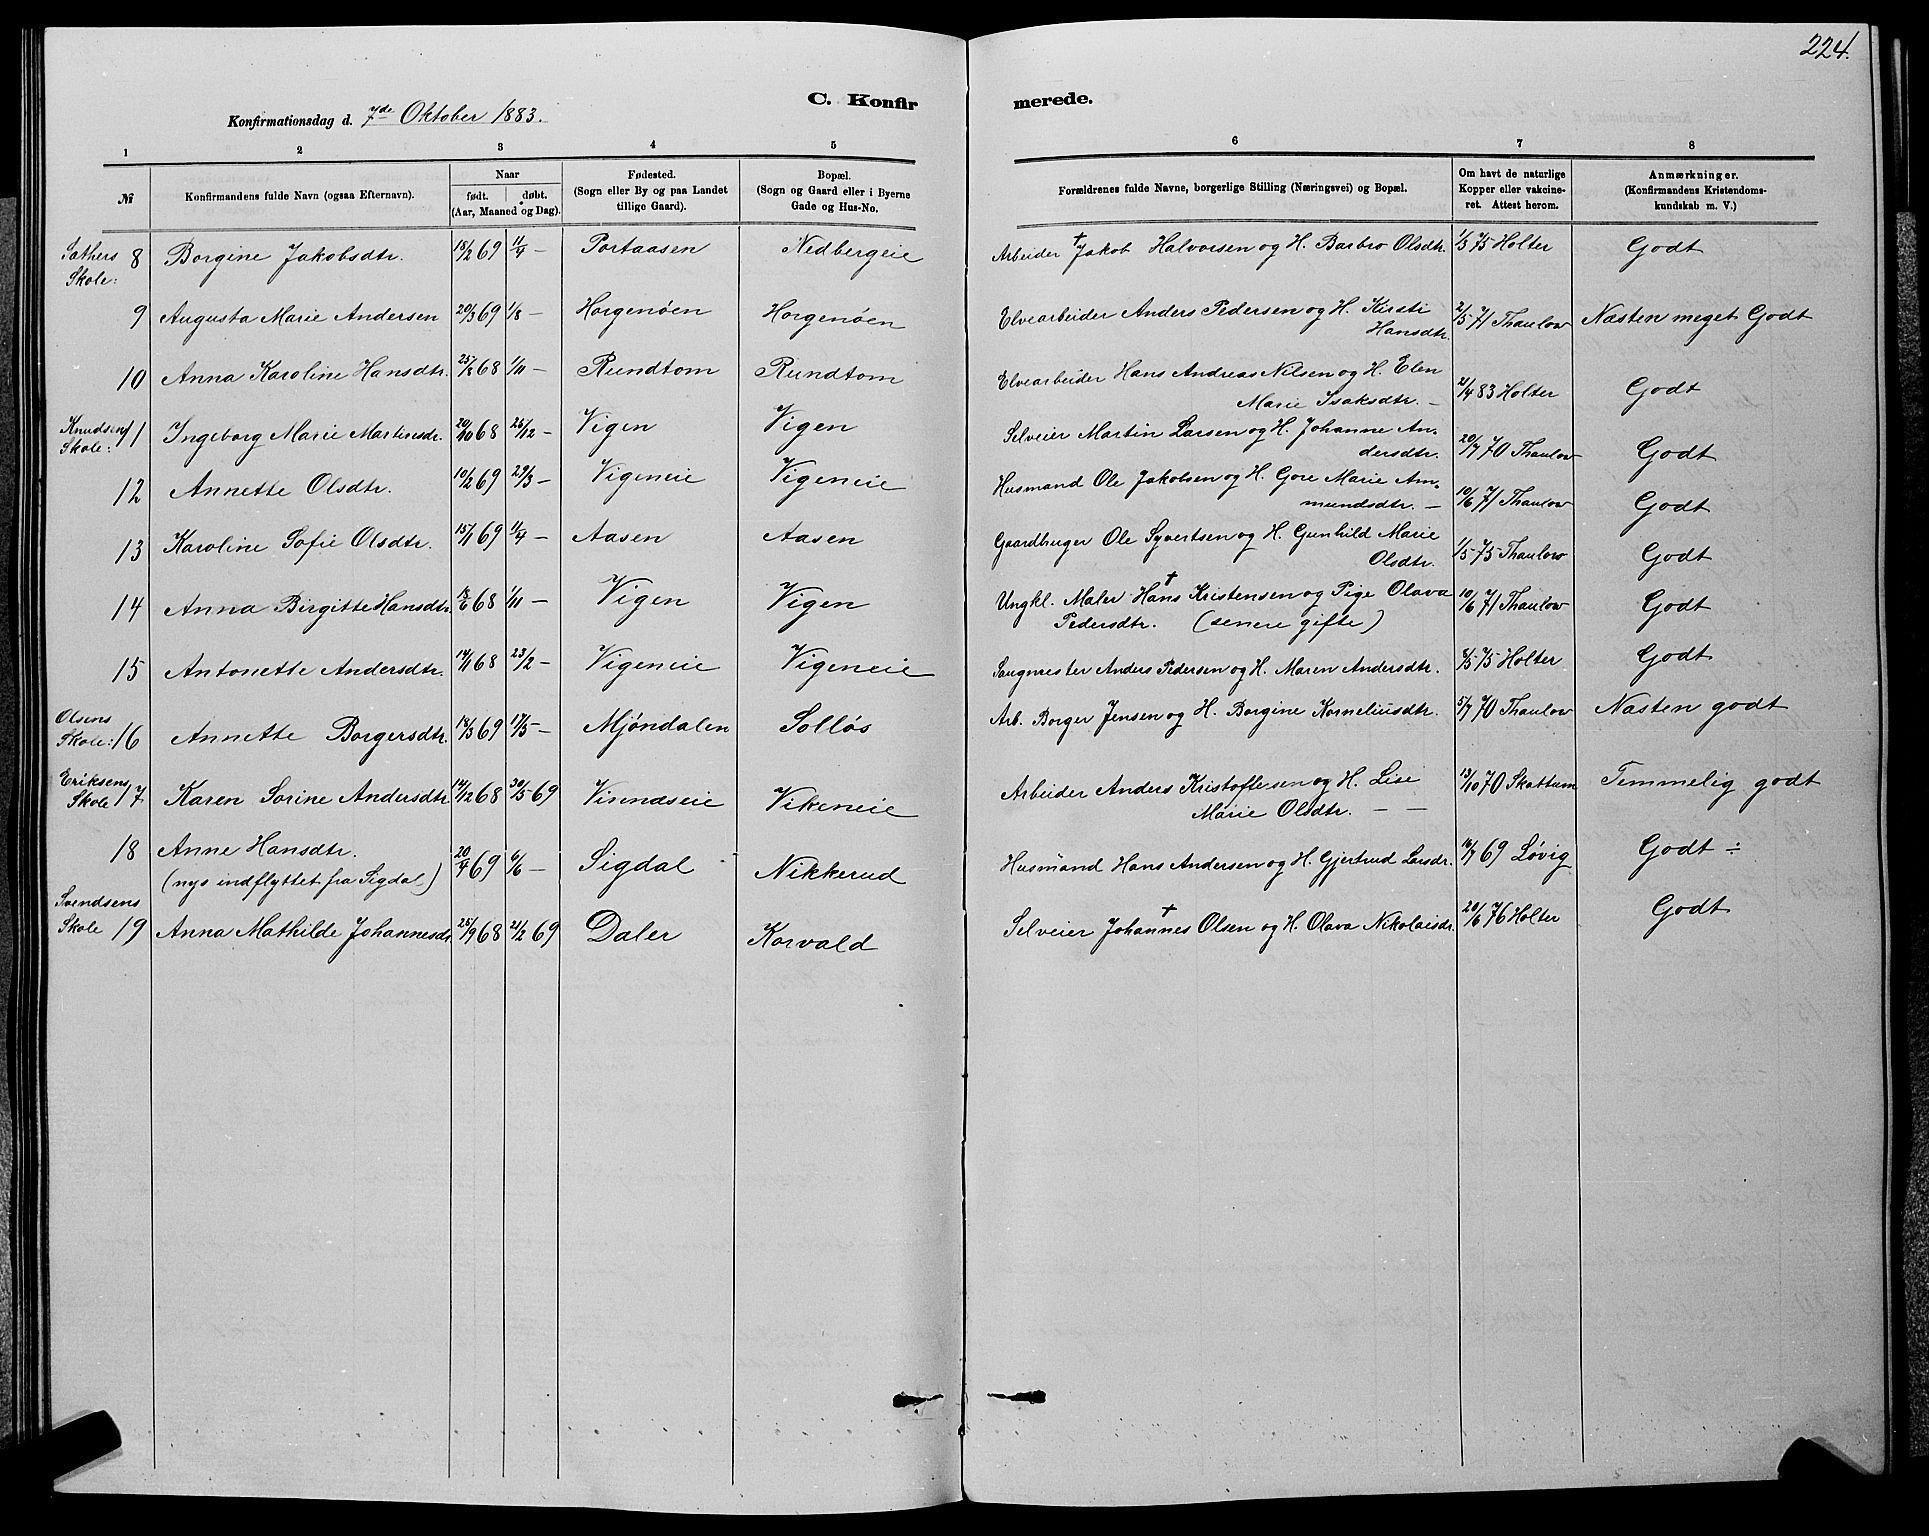 224.
C. Konfirmerede.
Konfirmationsdag d. 7de Oktober 1883.
1 2 3 4 5 6 7 8
№ Konfirmandens fulde Navn (ogsaa Efternavn). Naar født. døbt. (Aar, Maaned og Dag). Fødested. (Sogn eller By og paa Landet tillige Gaard). Bopæl. (Sogn og Gaard eller i Byerne Gade og Hus-No. Forældrenes fulde Navne, borgerlige Stilling (Næringsvei) og Bopæl. Om havt de naturlige Kopper eller vakcineret. Attest herom. Anmærkninger. (Konfirmandens Kristendomskundskab m. V.)
Sathers Skole: 8 Borgine Jakobsdtr. 18/2 69 11/4 — Portaasen Nedbergeie Arbeider † Jakob Halvorsen og H. Barbro Olsdtr. 1/3 75 Holter Godt
9 Augusta Marie Andersen 20/3 69 1/8 — Horgenöen Horgenöen Elvearbeider Anders Pedersen og H. Kirsti Hansdtr. 2/5 71 Thaulow Næsten meget Godt
10 Anna Karoline Hansdtr. 25/8 68 1/11 — Rundtom Rundtom Elvearbeider Hans Andreas Nilsen og H. Elen Marie Isaksdtr. — 21/4 83 Holter Godt
Knudsens Skole: 11 Ingeborg Marie Martinsdr. 20/10 68 26/12 — Vigen Vigen Selveier Martin Larsen og H. Johanne Andersdtr. 20/7 70 Thaulow Godt
12 Annette Olsdtr. 10/2 69 29/3 — Vigeneie Vigeneie Husmand Ole Jakobsen og H. Gore Marie Ammundsdtr. — 10/6 71 Thaulow Godt
13 Karoline Sofie Olsdtr. 15/1 69 11/4 — Aasen Aasen Gaardbruger Ole Syvertsen og H. Gunhild Marie Olsdtr. 1/5 75 Thaulow Godt
14 Anna Birgitte Hansdtr. 68 1/11 — Vigen Vigen Ungkl. Maler † Hans Kristensen og Pige Olava Pedersdtr. (senere gifte) 10/6 71 Thaulow Godt
15 Antonette Andersdtr. 14/11 68 23/2 — Vigeneie Vigeneie Saugmester Anders Pedersen og H. Maren Andersdtr. 75 Holter Godt
Olsens Skole: 16 Annette Borgersdtr. 18/3 69 17/5 — Mjöndalen Solløs Arb. Borger Jensen og H. Borgine Korneliusdtr. 5/7 70 Thaulow Næsten godt
Eriksens Skole 17 Karen Sorine Andersdtr 14/12 68 30/5 69 Vinnæseie Vikeneie Arbeider Anders Kristoffersen og H. Lise Marie Olsdtr. — — 13/10 70 Skattum Temmelig godt
18 Anne Hansdtr. (nys indflyttet fra Sigdal) 20/4 69 6/6 — Sigdal Nikkerud Husmand Hans Andersen og H. Gjertrud Larsdr. 16/7 69 Løvig Godt ÷
Svendsens Skole 19 Anna Mathilde Johannesdr 25/9 68 21/2 69 Daler Korvald Selveier † Johannes Olsen og H. Olava Nikolaisdr. 20/6 76 Holter Godt